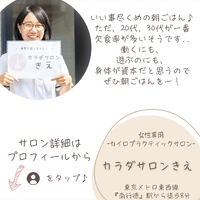 いい事尽くめの朝ごはん♪
ただ、20代、30代が一番
欠食率が多いそうです..
働くにも、
遊ぶのにも、
身体が資本だと思うので
ぜひ朝ごはんをー!
カラダサロン
きえ
サロン詳細は
プロフィールから
をタップ♪
女性専用
-カイロプラクティックサロン-
カラダサロンきえ
東京メトロ東西線
『南行徳』駅から徒歩8分